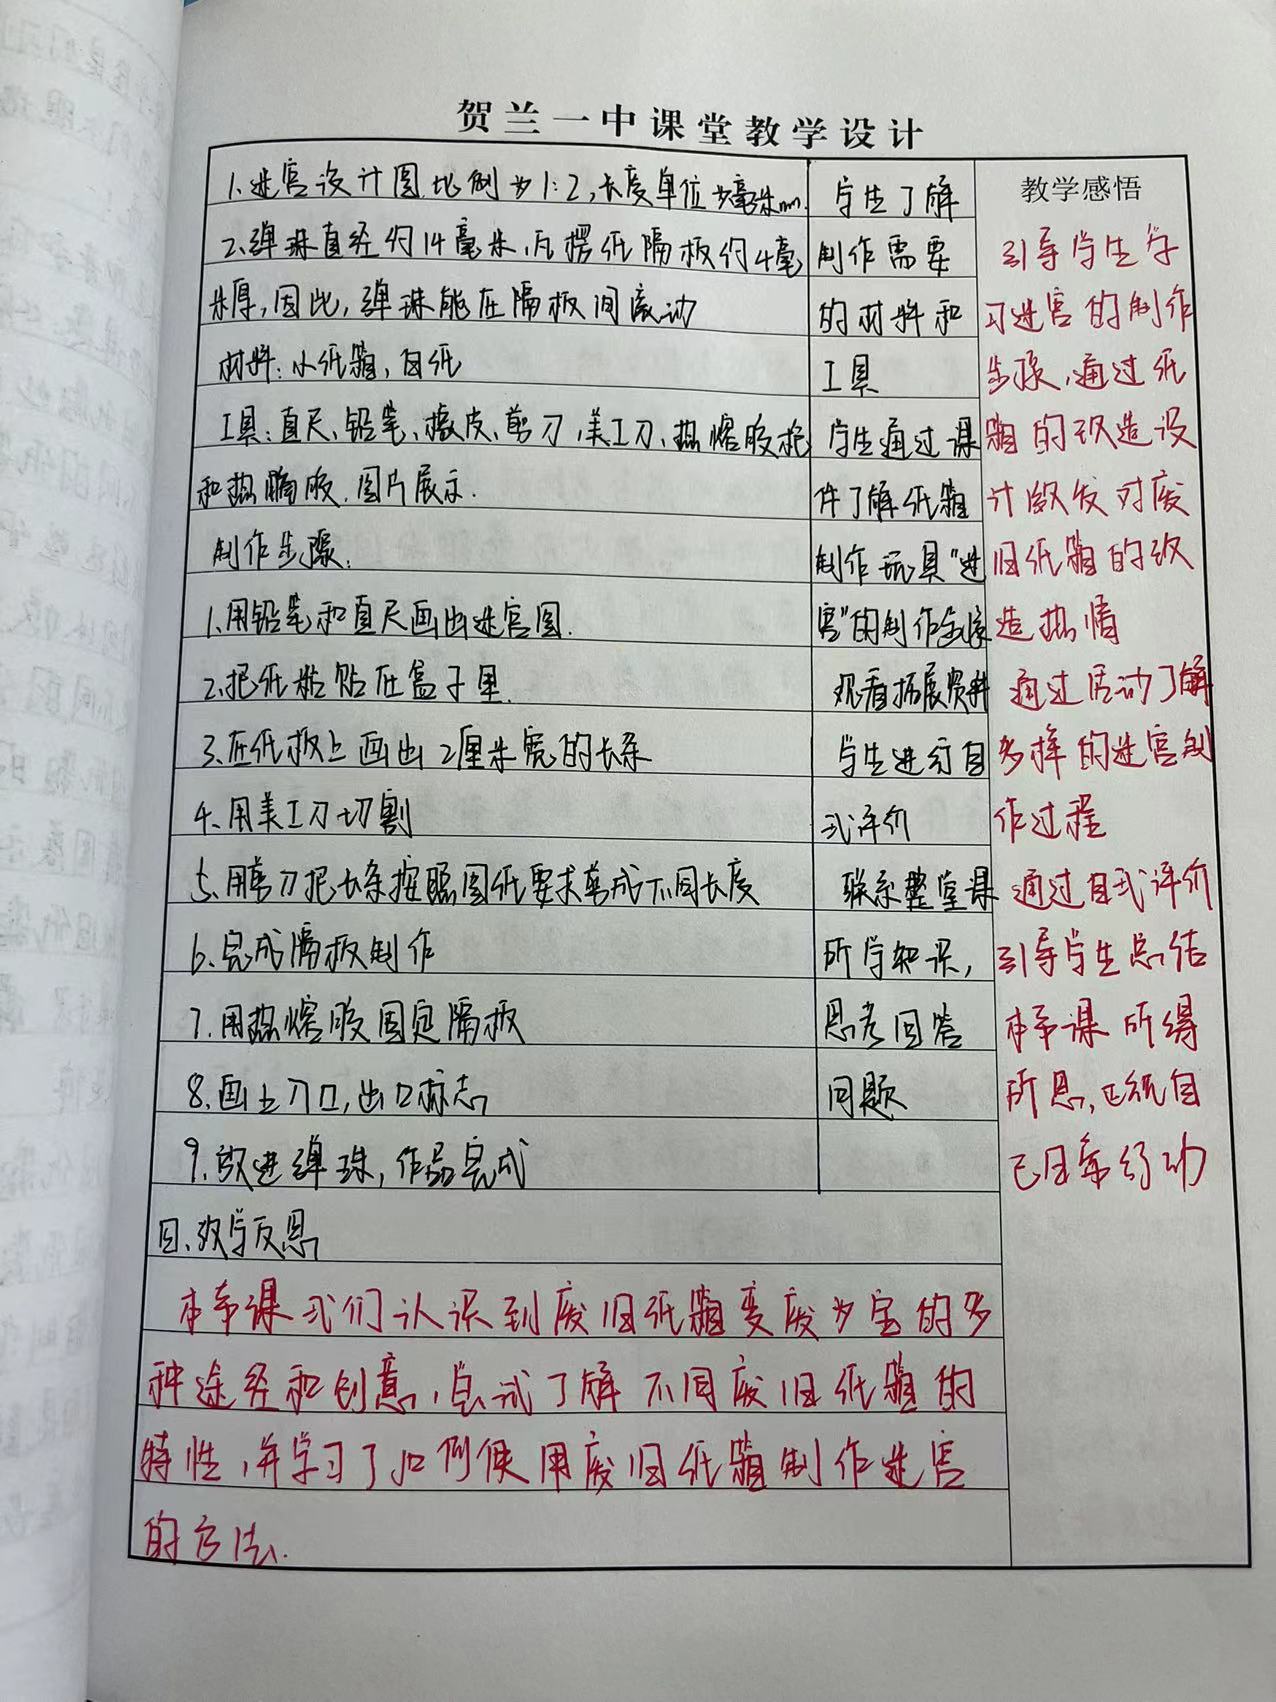 贺兰一中课堂教学设计
1.迷宫设计图比例为1:2,长度单位为毫米mm.
2.弹珠直径约14毫米,瓦楞纸隔板约4毫
米厚,因此,弹珠能在隔板间滚动
材料:小纸箱,白纸
工具:直尺、铅笔、橡皮、剪刀,美工刀、热熔胶枪
和热熔胶.图片展示.
制作步骤:
1.用铅笔和直尺画出迷宫图.
2.把纸粘贴在盒子里.
3.在纸板上画出2厘米宽的长条
4.用美工刀切割
5.用剪刀把长条按照图纸要求剪成不同长度
6.完成隔板制作
7.用热熔胶固定隔板
8.画上入口,出口标志
9.放进弹珠,作品完成
学生了解
制作需要
的材料和
工具
学生通过课
件了解纸箱
制作玩具"迷
宫"的制作步骤
观看拓展资料
学生进行自
我评价
联系整堂课
所学知识,
思考回答
问题
教学感悟
引导学生学
习迷宫的制作
步骤,通过纸
箱的改造设
计激发对废
旧纸箱的改
造热情
通过活动了解
多样的迷宫制
作过程
通过自我评价
引导学生总结
本节课所得
所思,
己日常行动
四.教学反思
本节课我们认识到废旧纸箱变废为宝的多
种途径和创意,尝试了解不同废旧纸箱的
特性,并学习了如何使用废旧纸箱制作迷宫
的方法.